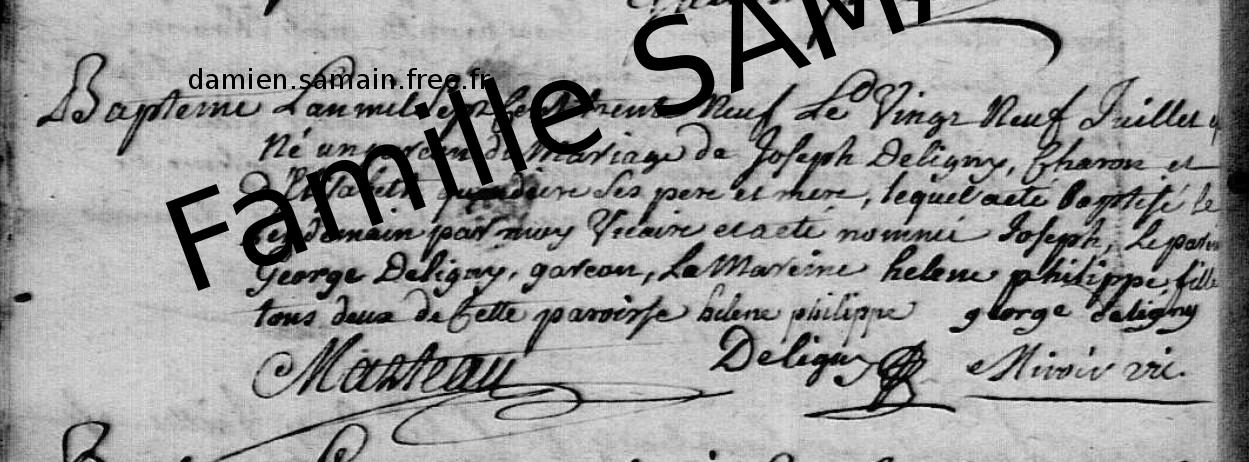 damien.samain.free.fr
Famille SAMA
Bapteme L'an mil sept cent trente Neuf Le Vingt Neuf Juillet
Né un garcon du Mariage de Joseph Deligny, Charon et
ses pere et mere, lequel a eté baptisé le
lendemain par moy Vicaire et a eté nommé Joseph, Le parin
George Deligny, garcon, La Mareine helene philippe, fille
tous deux de Cette paroisse helene philippe george deligny
Masteau Deligny Miroir vic.